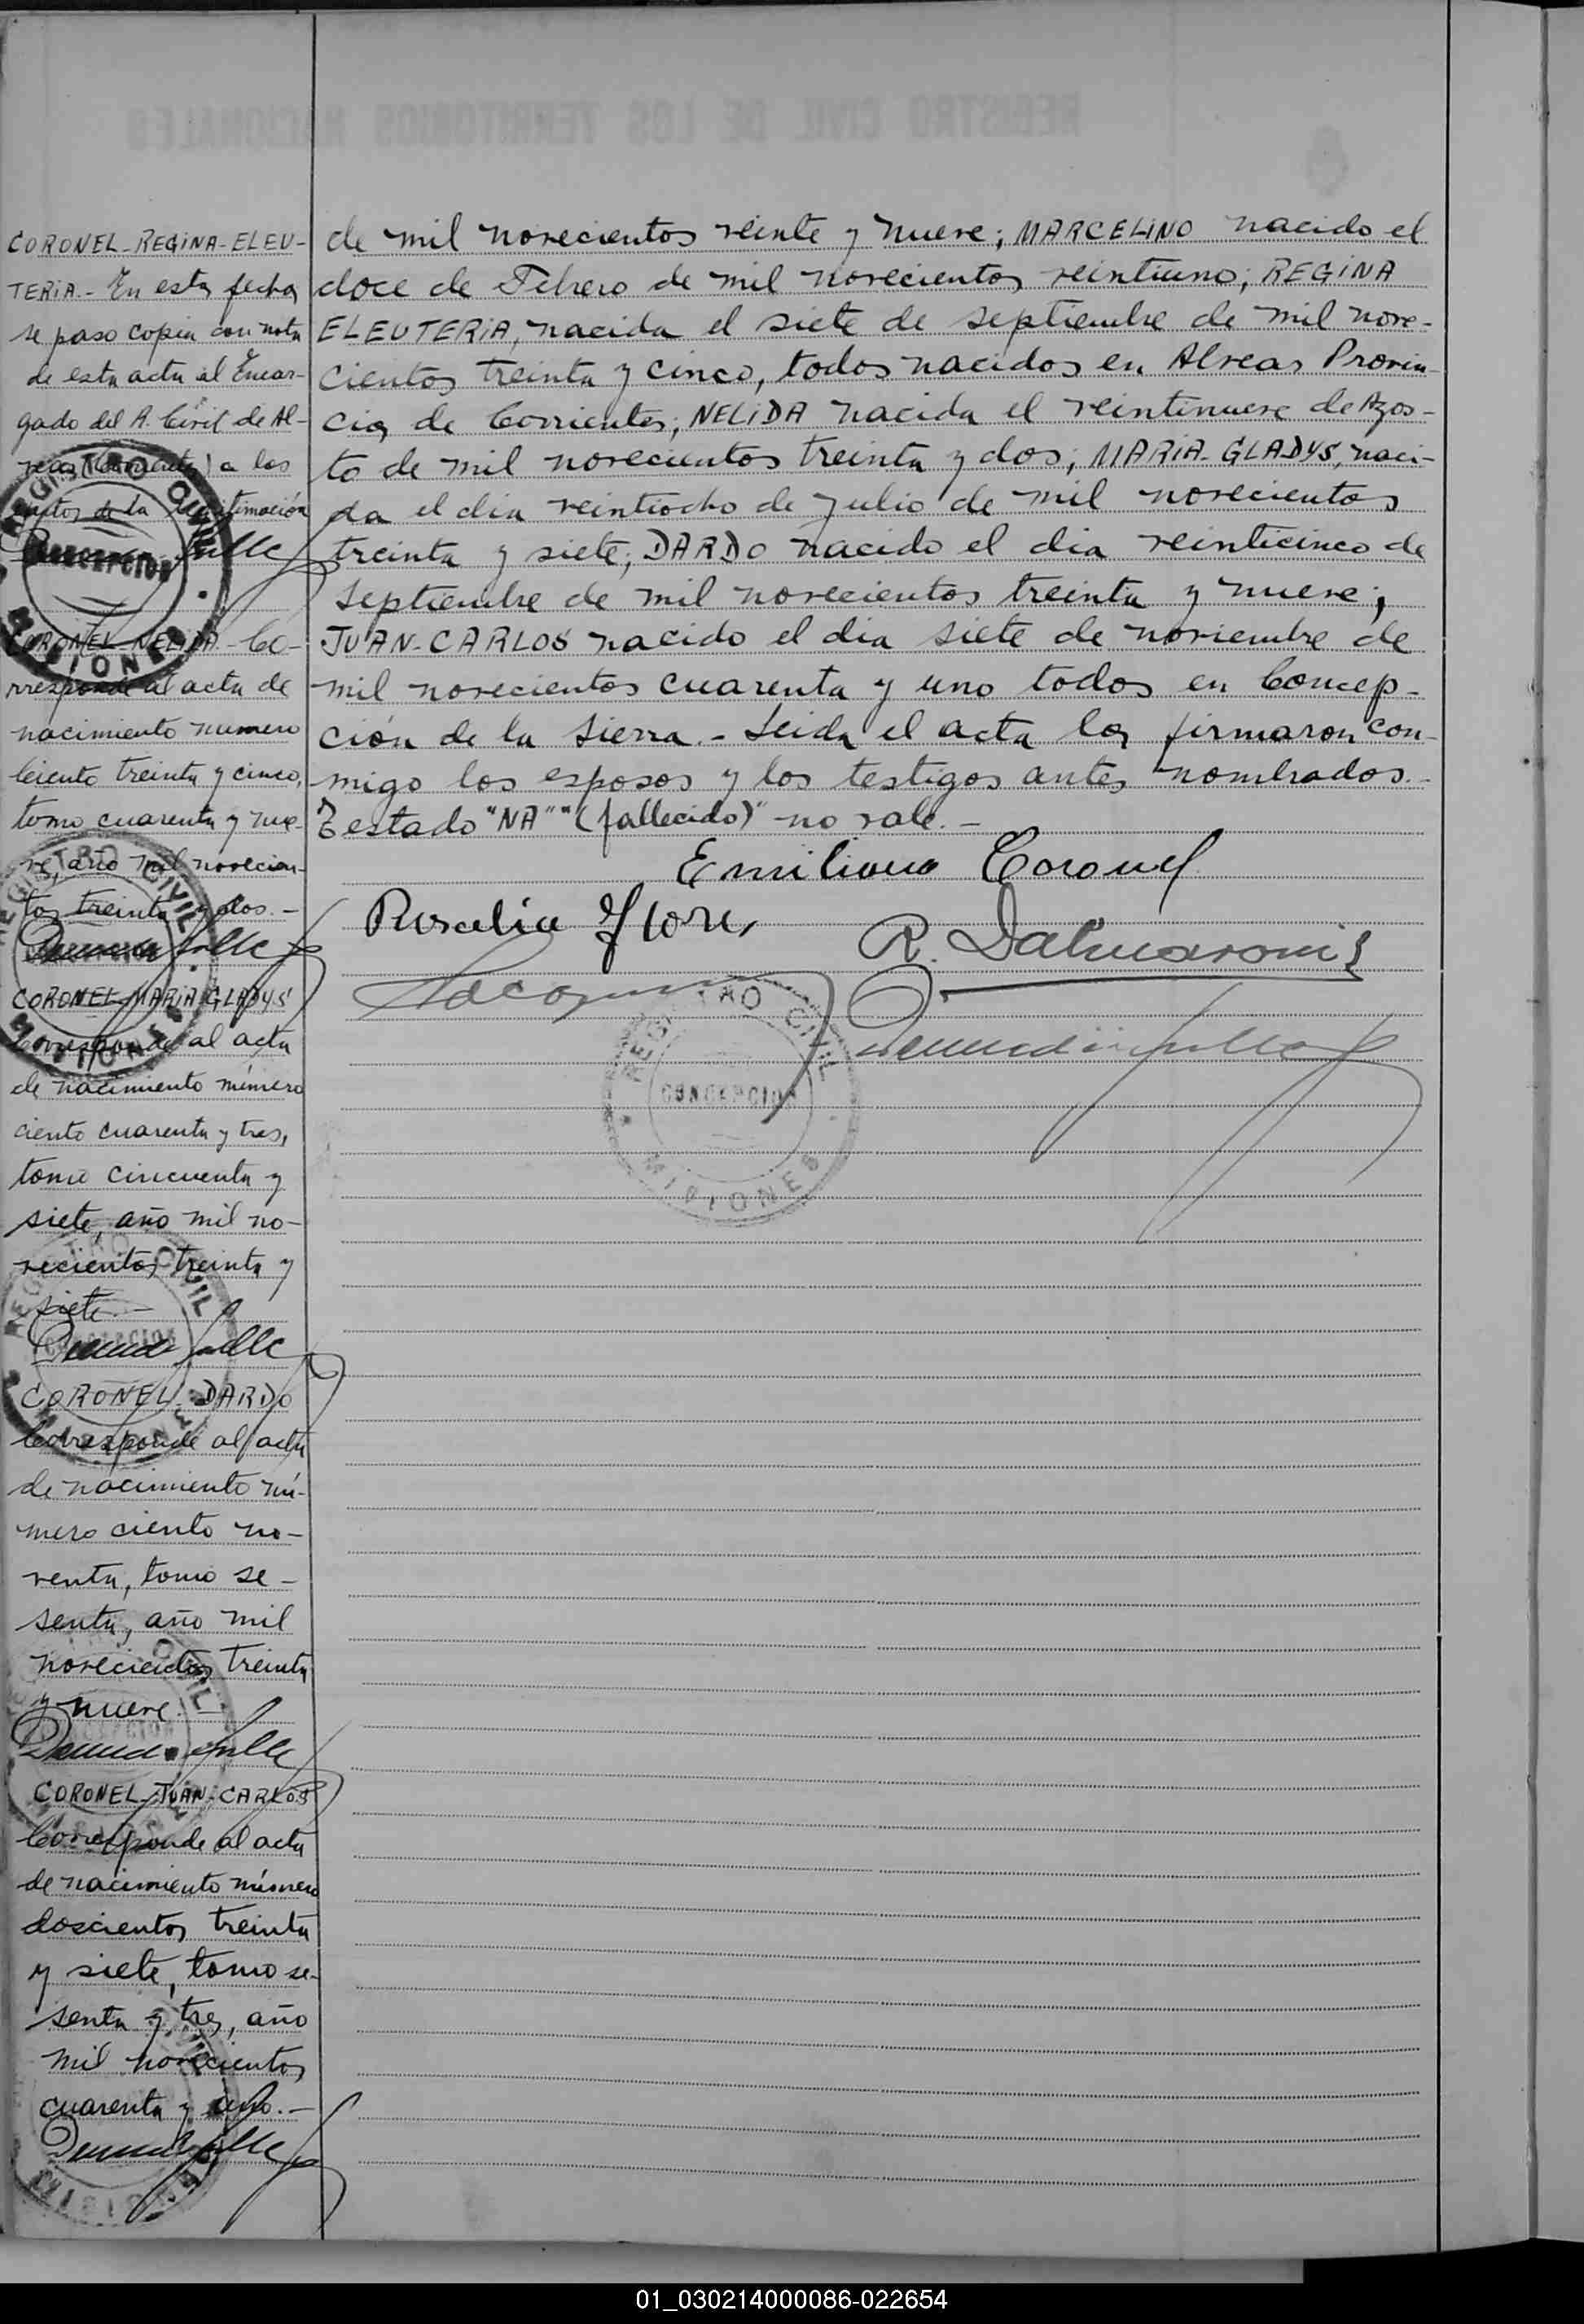 CORONEL-REGINA-ELEU-
TERIA.- En esta fecha
se paso copia con nota
de esta acta al Encar-
gado del R. Civil de Al-
vear (Corrientes) a los
efectos de la legitimación
REGISTRO CIVIL
CONCEPCION
MISIONES
CORONEL-NELIDA.-Co-
rresponde al acta de
nacimiento numero
ciento treinta y cinco,
tomo cuarenta y nue-
ve, año mil novecien-
tos treinta y dos.-
CORONEL-MARIA-GLADYS
Corresponde al acta
de nacimiento número
ciento cuarenta y tres,
tomo cincuenta y
siete, año mil no-
vecientos treinta y
siete.-
CORONEL-DARDO
Corresponde al acta
de nacimiento nú-
mero ciento no-
venta, tomo se-
senta, año mil
novecientos treinta
y nueve.-
CORONEL-JUAN-CARLOS
Corresponde al acta
de nacimiento número
doscientos treinta
y siete, tomo se-
senta y tres, año
mil novecientos
cuarenta y uno.-
de mil novecientos veinte y nueve; MARCELINO nacido el
doce de Febrero de mil novecientos veintiuno; REGINA
ELEUTERIA, nacida el siete de septiembre de mil nove-
cientos treinta y cinco, todos nacidos en Alvear Provin-
cia de Corrientes; NELIDA nacida el veintinueve de Agos-
to de mil novecientos treinta y dos; MARIA-GLADYS, naci-
da el dia veintiocho de julio de mil novecientos
treinta y siete; DARDO nacido el dia veinticinco de
septiembre de mil novecientos treinta y nueve;
JUAN-CARLOS nacido el dia siete de noviembre de
mil novecientos cuarenta y uno todos en Concep-
ción de la Sierra.- Leida el acta la firmaron con-
migo los esposos y los testigos antes nombrados.-
Testado "NA" "(fallecido)" no vale.-
Emiliano Coronel
Rosalia Flores
R. Dalmaroni
REGISTRO CIVIL
CONCEPCION
MISIONES
01_030214000086-022654